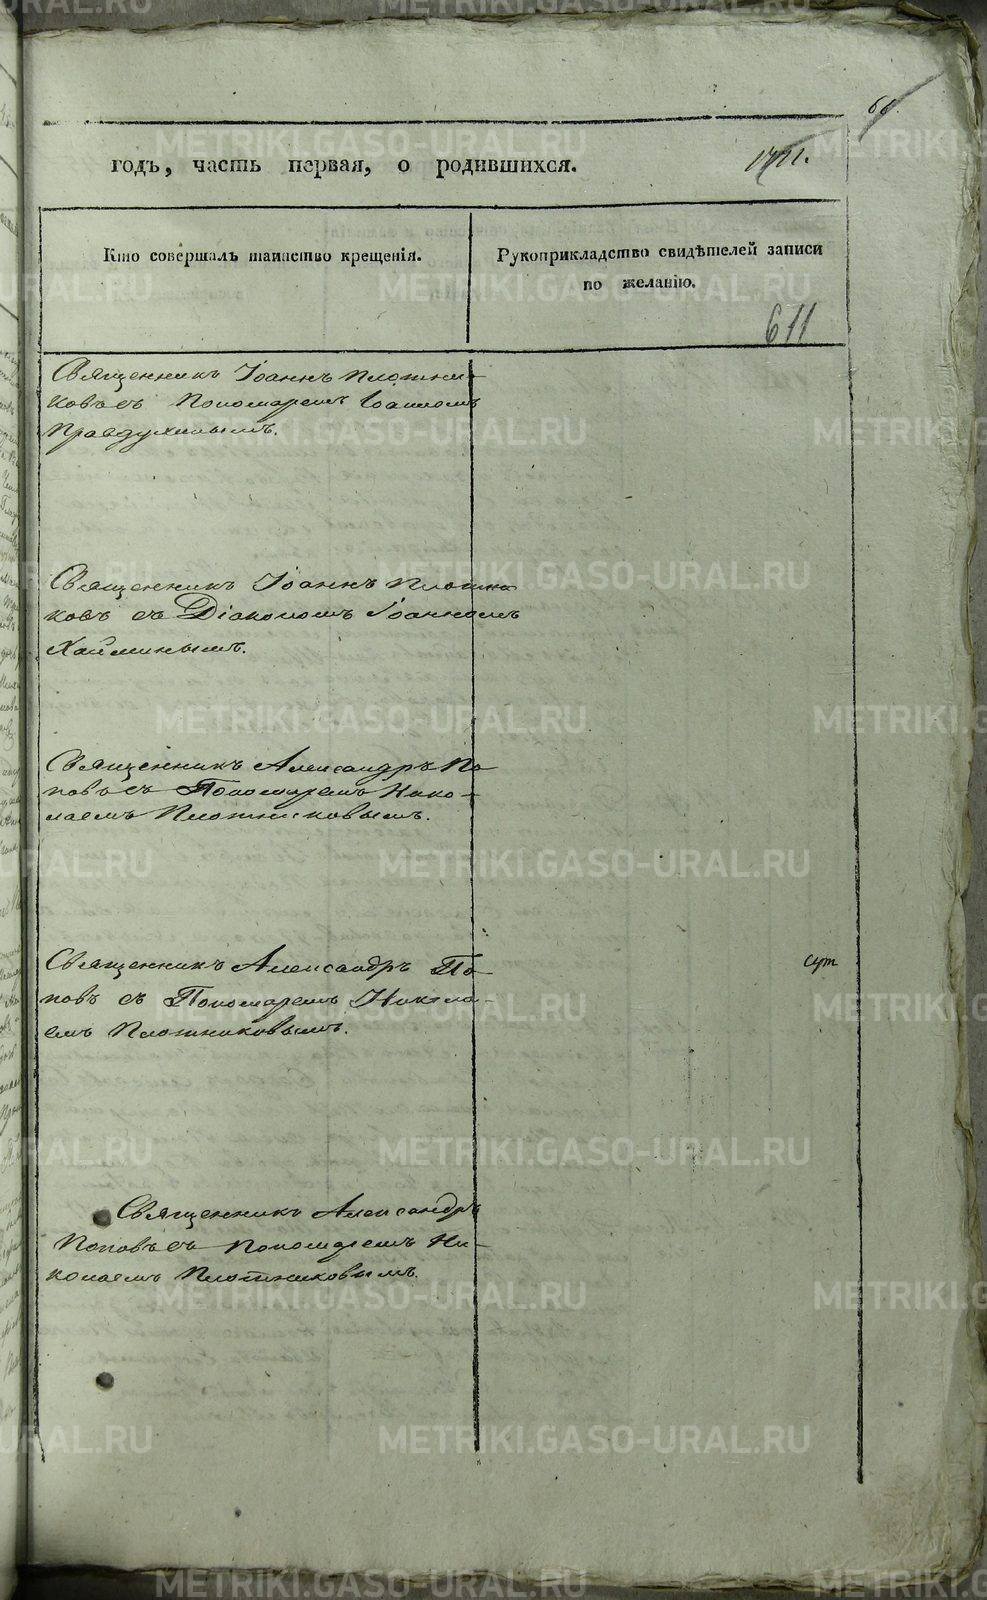 66
годъ, часть первая, о родившихся.
Кто совершалъ таинство крещенія.
Рукоприкладство свидѣтелей записи
по желанію.
611
Священникъ Іоаннъ Плотни-
ковъ съ Пономаремъ Іоанномъ
Правдухинымъ.
Священникъ Іоаннъ Плотни
ковъ съ Діакономъ Іоанномъ
Хайминымъ.
Священникъ Александръ По
повъ съ Пономаремъ Нико-
лаемъ Плотниковымъ.
Священникъ Александръ По-
повъ съ Пономаремъ Никола-
емъ Плотниковымъ.
сут
Священникъ Александръ
Поповъ съ Пономаремъ Ни-
колаемъ Плотниковымъ.
METRIKI.GASO-URAL.RU